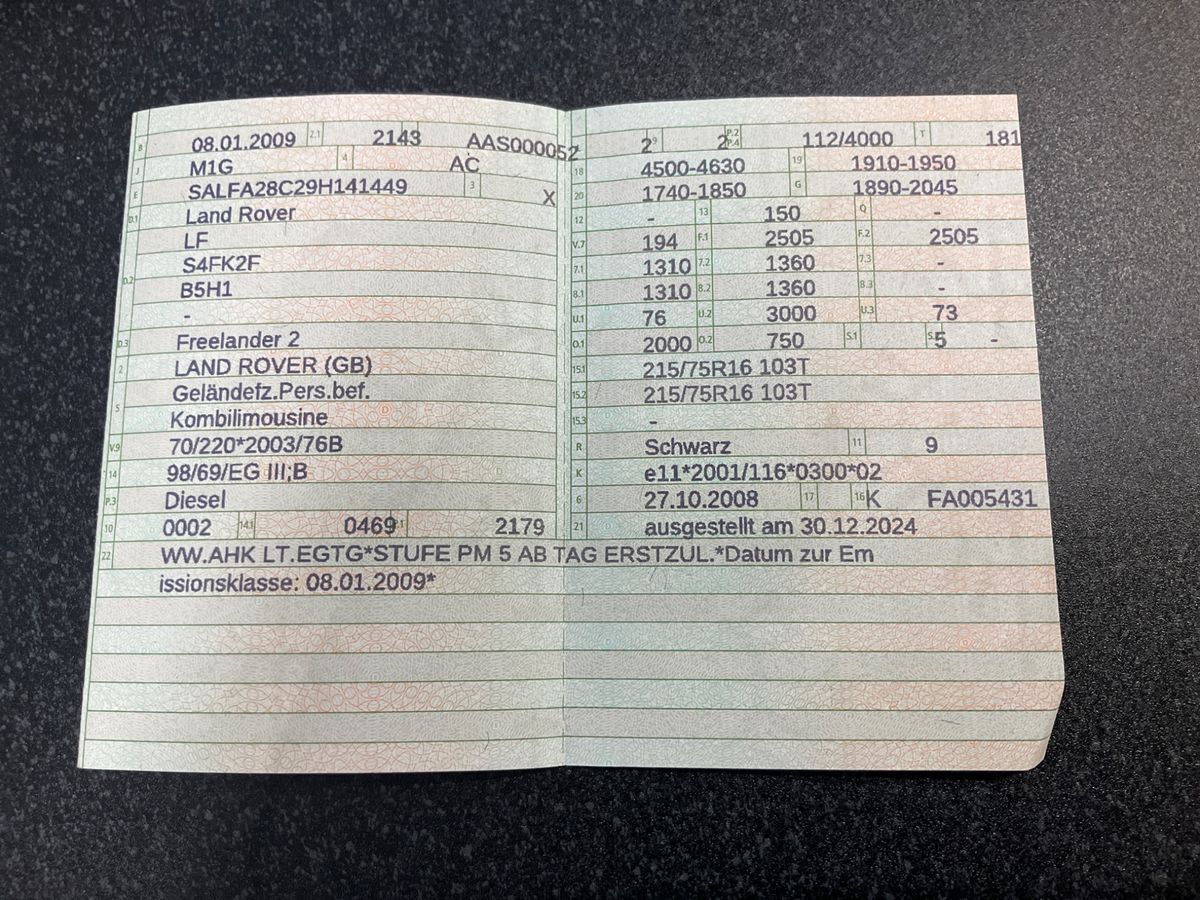 B 08.01.2009 2.1 2143 AAS000052
J M1G 4 AC
E SALFA28C29H141449 3 X
D.1 Land Rover
LF
D.2 S4FK2F
B5H1
-
D.3 Freelander 2
2 LAND ROVER (GB)
Geländefz.Pers.bef.
5 Kombilimousine
V.9 70/220*2003/76B
14 98/69/EG III;B
P.3 Diesel
10 0002 14.1 0469 P.1 2179
2 9 2 P.2 P.4 112/4000 T 181
18 4500-4630 19 1910-1950
20 1740-1850 G 1890-2045
12 - 13 150 Q -
V.7 194 F.1 2505 F.2 2505
7.1 1310 7.2 1360 7.3 -
8.1 1310 8.2 1360 8.3 -
U.1 76 U.2 3000 U.3 73
O.1 2000 O.2 750 S.1 5 S.2 -
15.1 215/75R16 103T
15.2 215/75R16 103T
15.3 -
R Schwarz 11 9
K e11*2001/116*0300*02
6 27.10.2008 17 K 16 FA005431
21 ausgestellt am 30.12.2024
22 WW.AHK LT.EGTG*STUFE PM 5 AB TAG ERSTZUL.*Datum zur Em
issionsklasse: 08.01.2009*